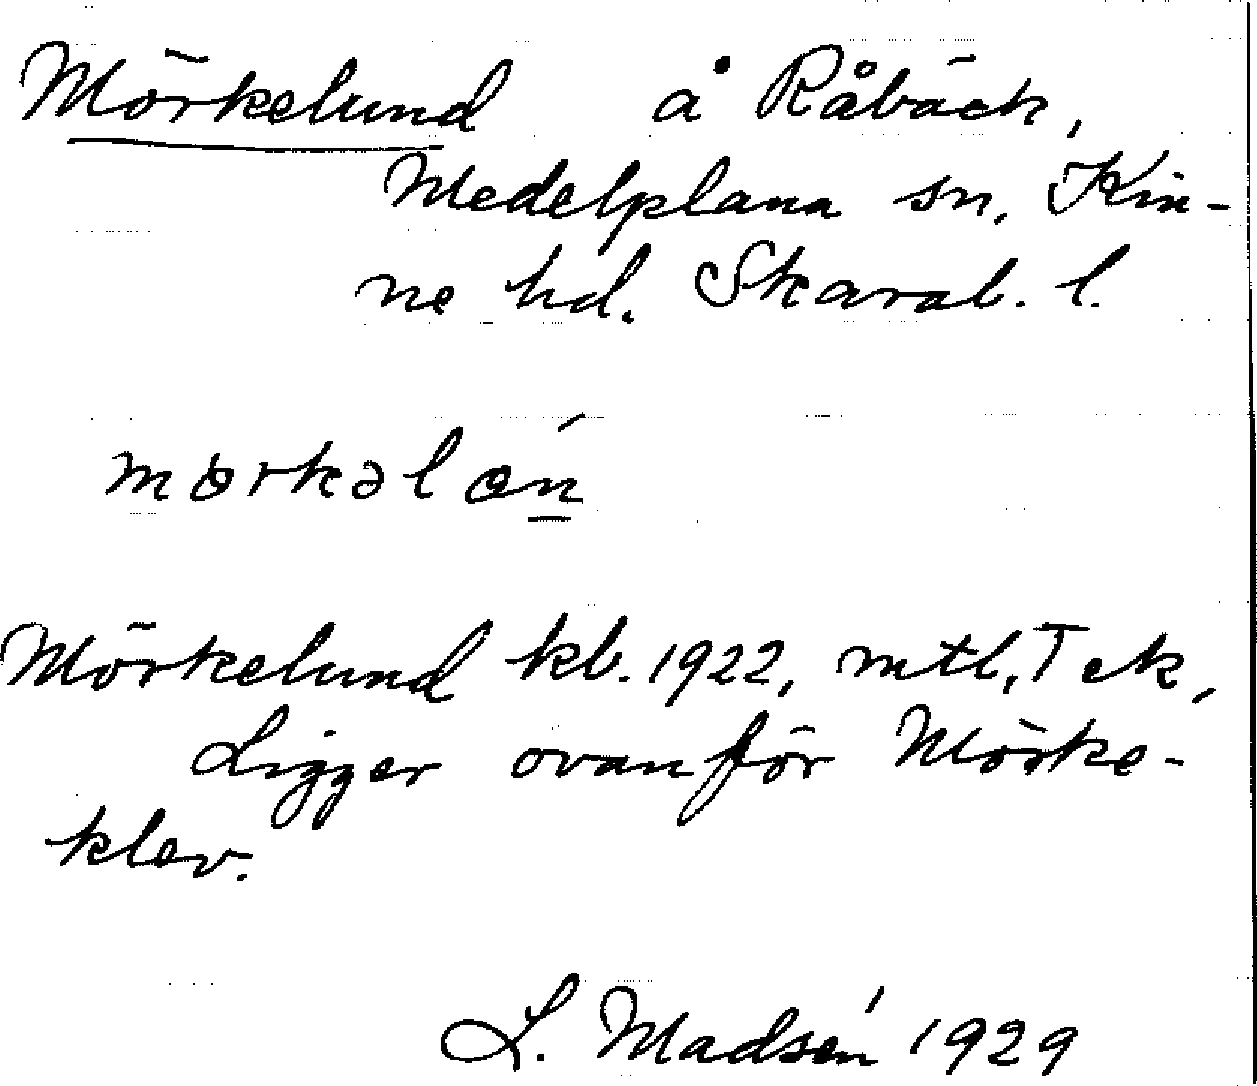 Mörkelund å Råbäck,
Medelplana sn, Kin-
ne hd. Skarab. l.
mörkəl
Mörkelund kb. 1922, mtl, T ek,
Ligger ovanför Mörke-
klev.
L. Madsén 1929